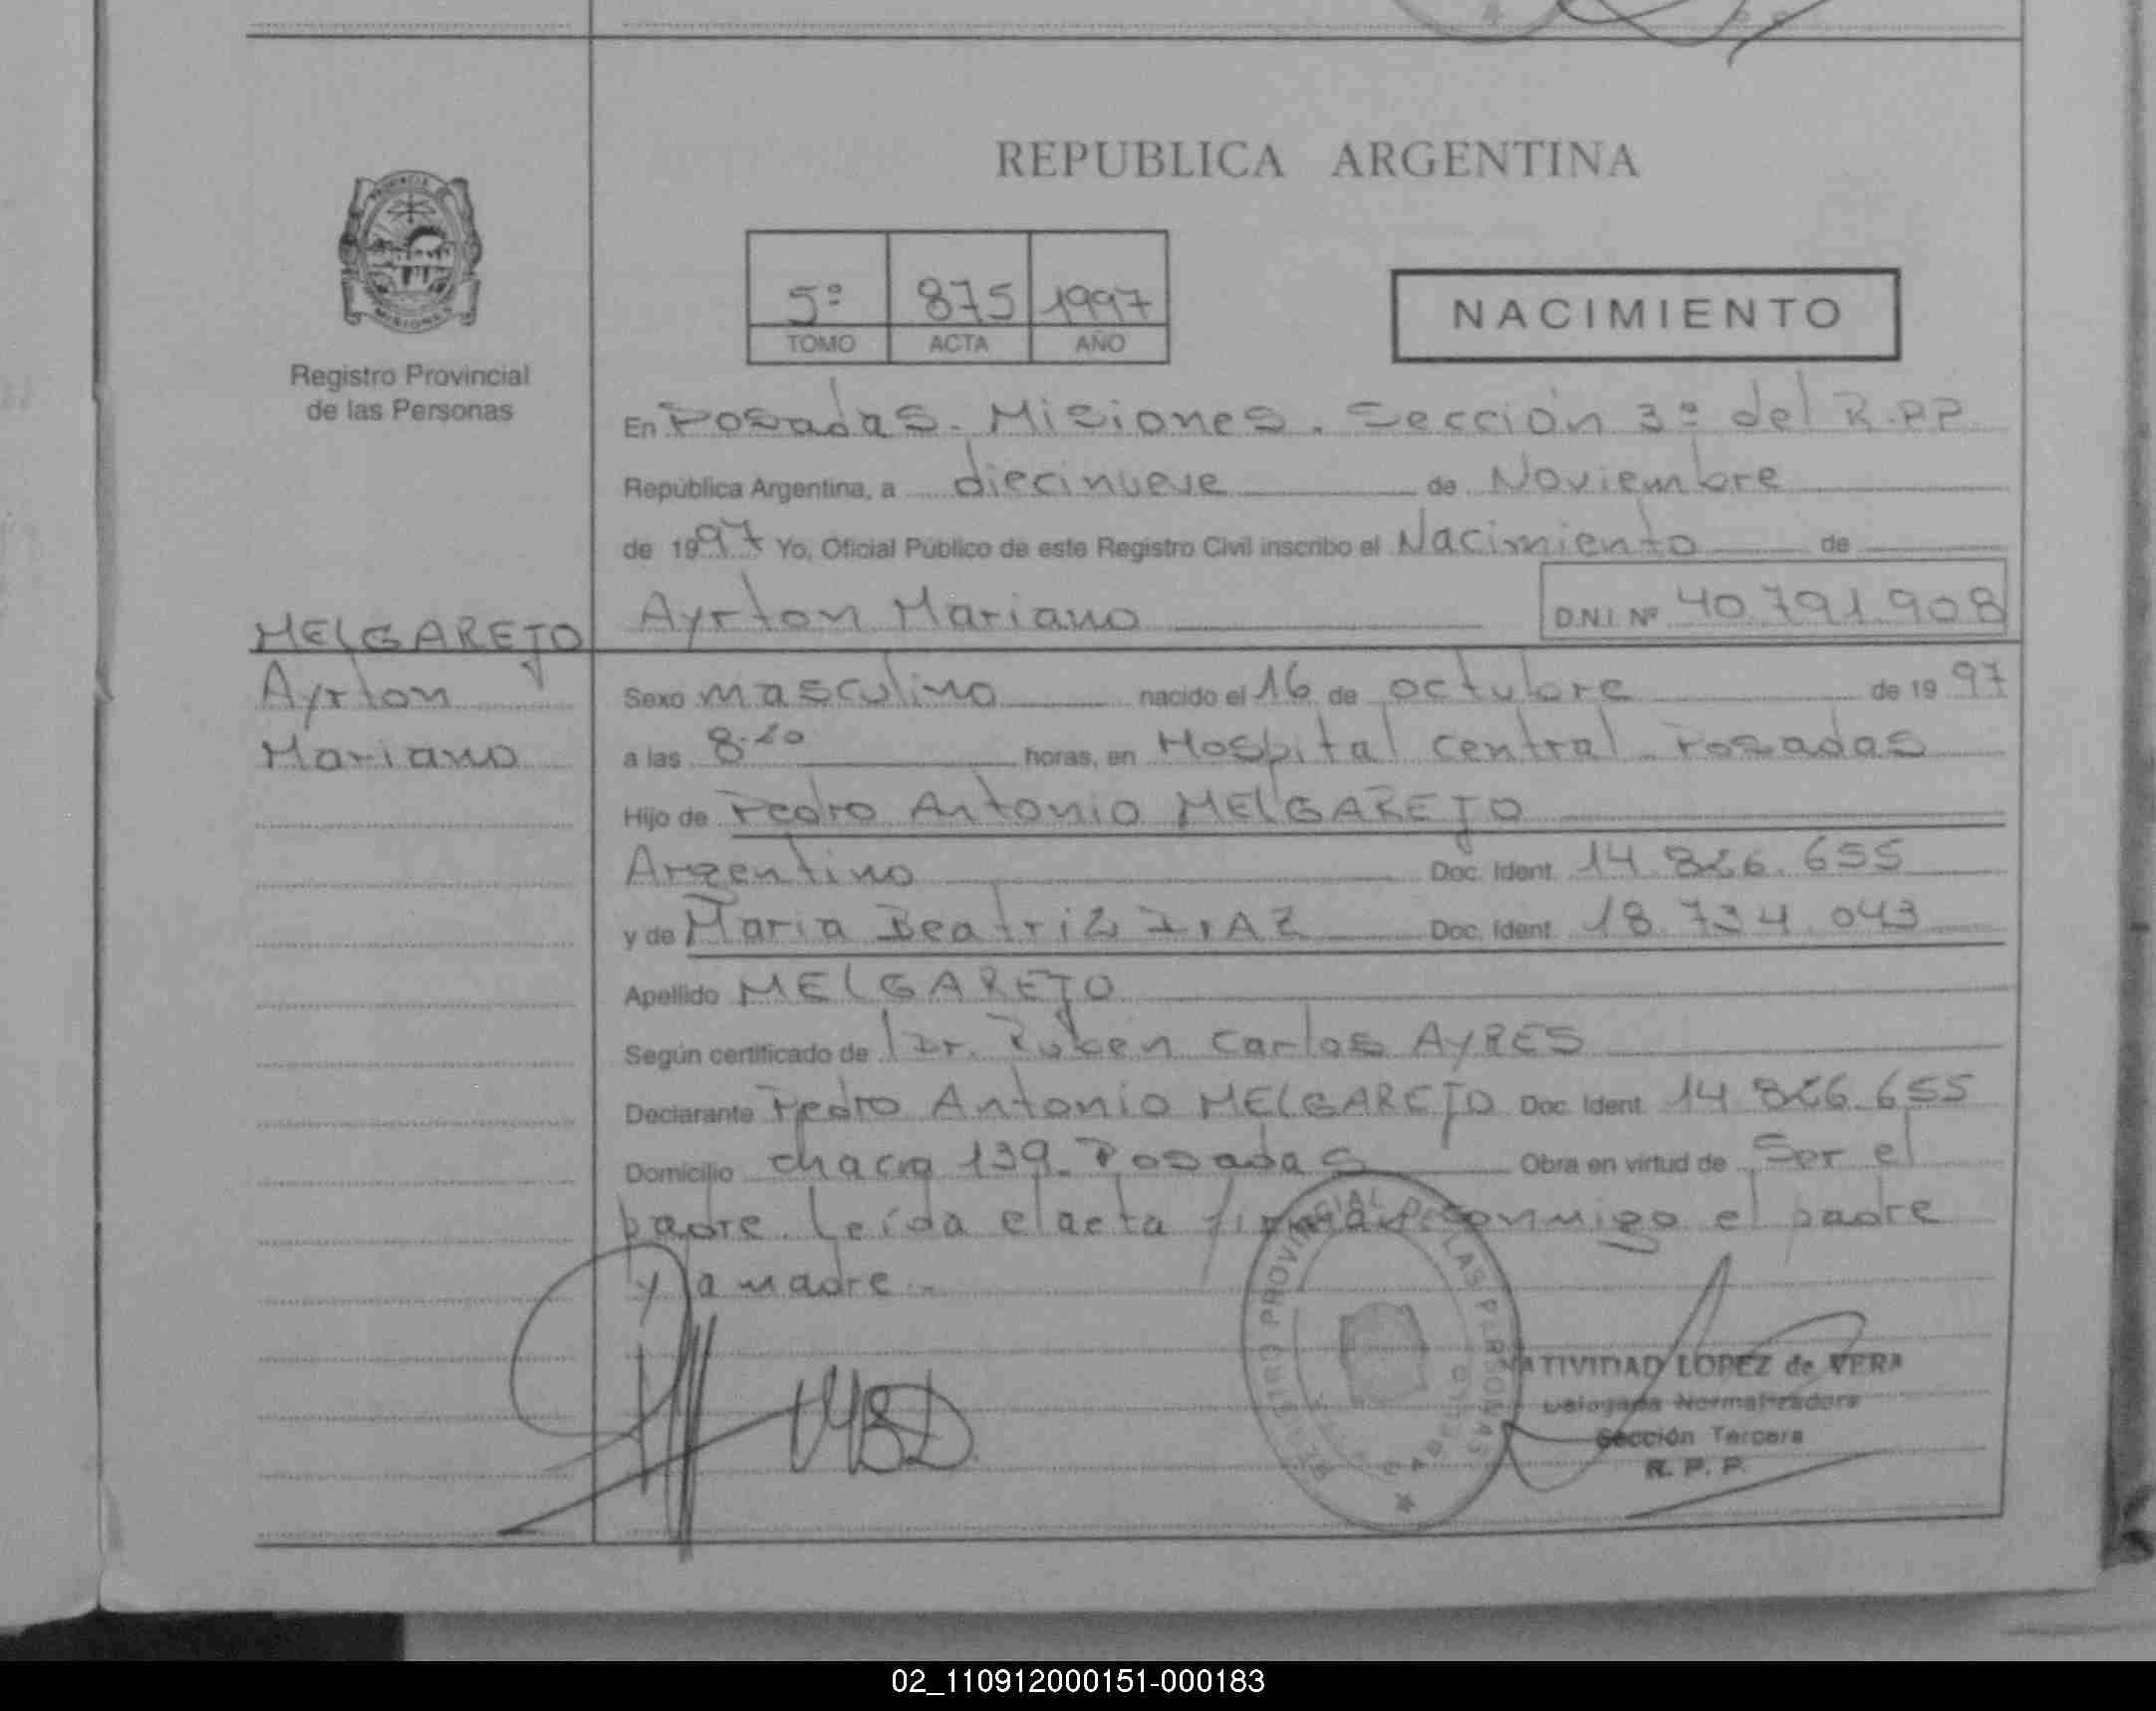 REPUBLICA ARGENTINA
PROVINCIA
MISIONES
Registro Provincial
de las Personas
5º 875 1997
TOMO ACTA AÑO
NACIMIENTO
En Posadas. Misiones. Sección 3º del R.P.P.
República Argentina, a diecinueve de Noviembre
de 1997 Yo, Oficial Público de este Registro Civil inscribo el Nacimiento de
Ayrton Mariano D.N.I. Nº 40.791.908
MELGAREJO
Ayrton
Mariano
Sexo masculino nacido el 16 de octubre de 1997
a las 8.20 horas, en Hospital central. Posadas
Hijo de Pedro Antonio MELGAREJO
Argentino Doc. Ident. 14.826.655
y de Maria Beatriz DIAZ Doc. Ident. 18.734.043
Apellido MELGAREJO
Según certificado de Dr. Ruben Carlos AYRES
Declarante Pedro Antonio MELGAREJO Doc. Ident. 14.826.655
Domicilio chacra 139. Posadas Obra en virtud de Ser el
padre. Leída el acta firman conmigo el padre
y la madre.-
MBD
REGISTRO PROVINCIAL DE LAS PERSONAS
NATIVIDAD LOPEZ de VERA
Delegada Normalizadora
Sección Tercera
R. P. P.
02_110912000151-000183